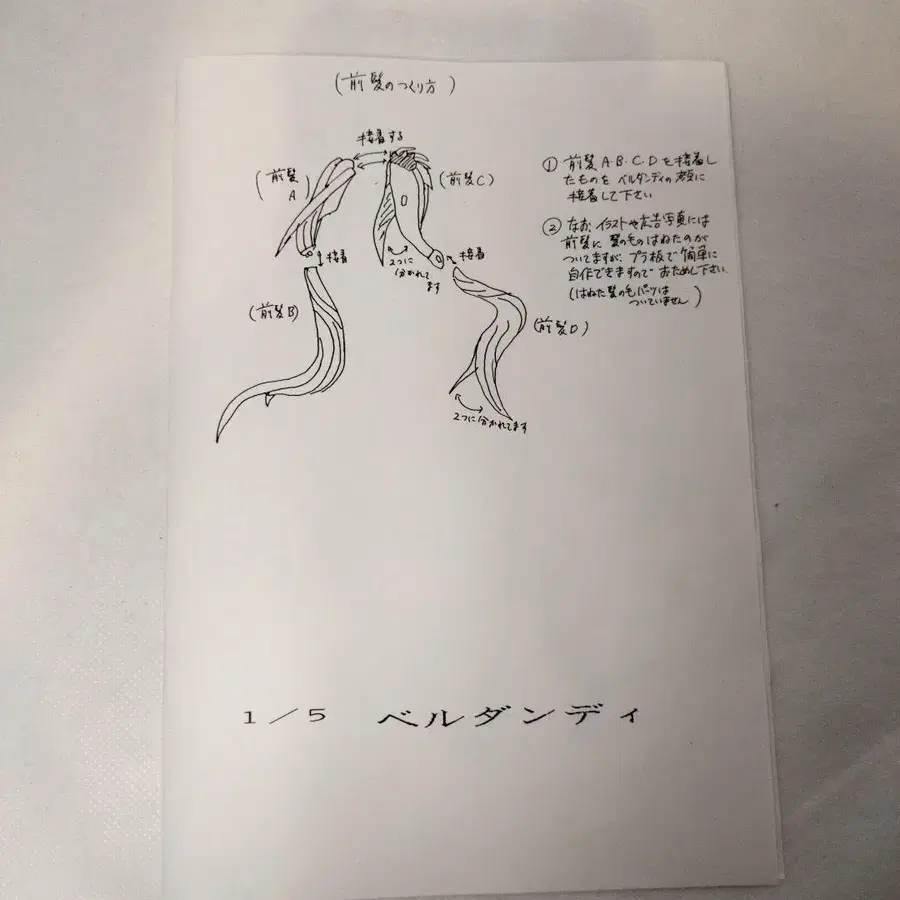 (前髪のつくり方)
接着する
(前髪
A)
(前髪C)
接着
2つに
分かれて
ます
接着
(前髪B)
(前髪D)
2つに分かれてます
① 前髪A.B.C.Dを接着し
たものを ベルダンディの顔に
接着して下さい
② なお、イラストや広告写真には
前髪に 髪の毛のはねたのが
ついてますが、プラ板で簡単に
自作できますので おためし下さい。
(はねた髪の毛パーツは
ついていません)
1/5 ベルダンディ